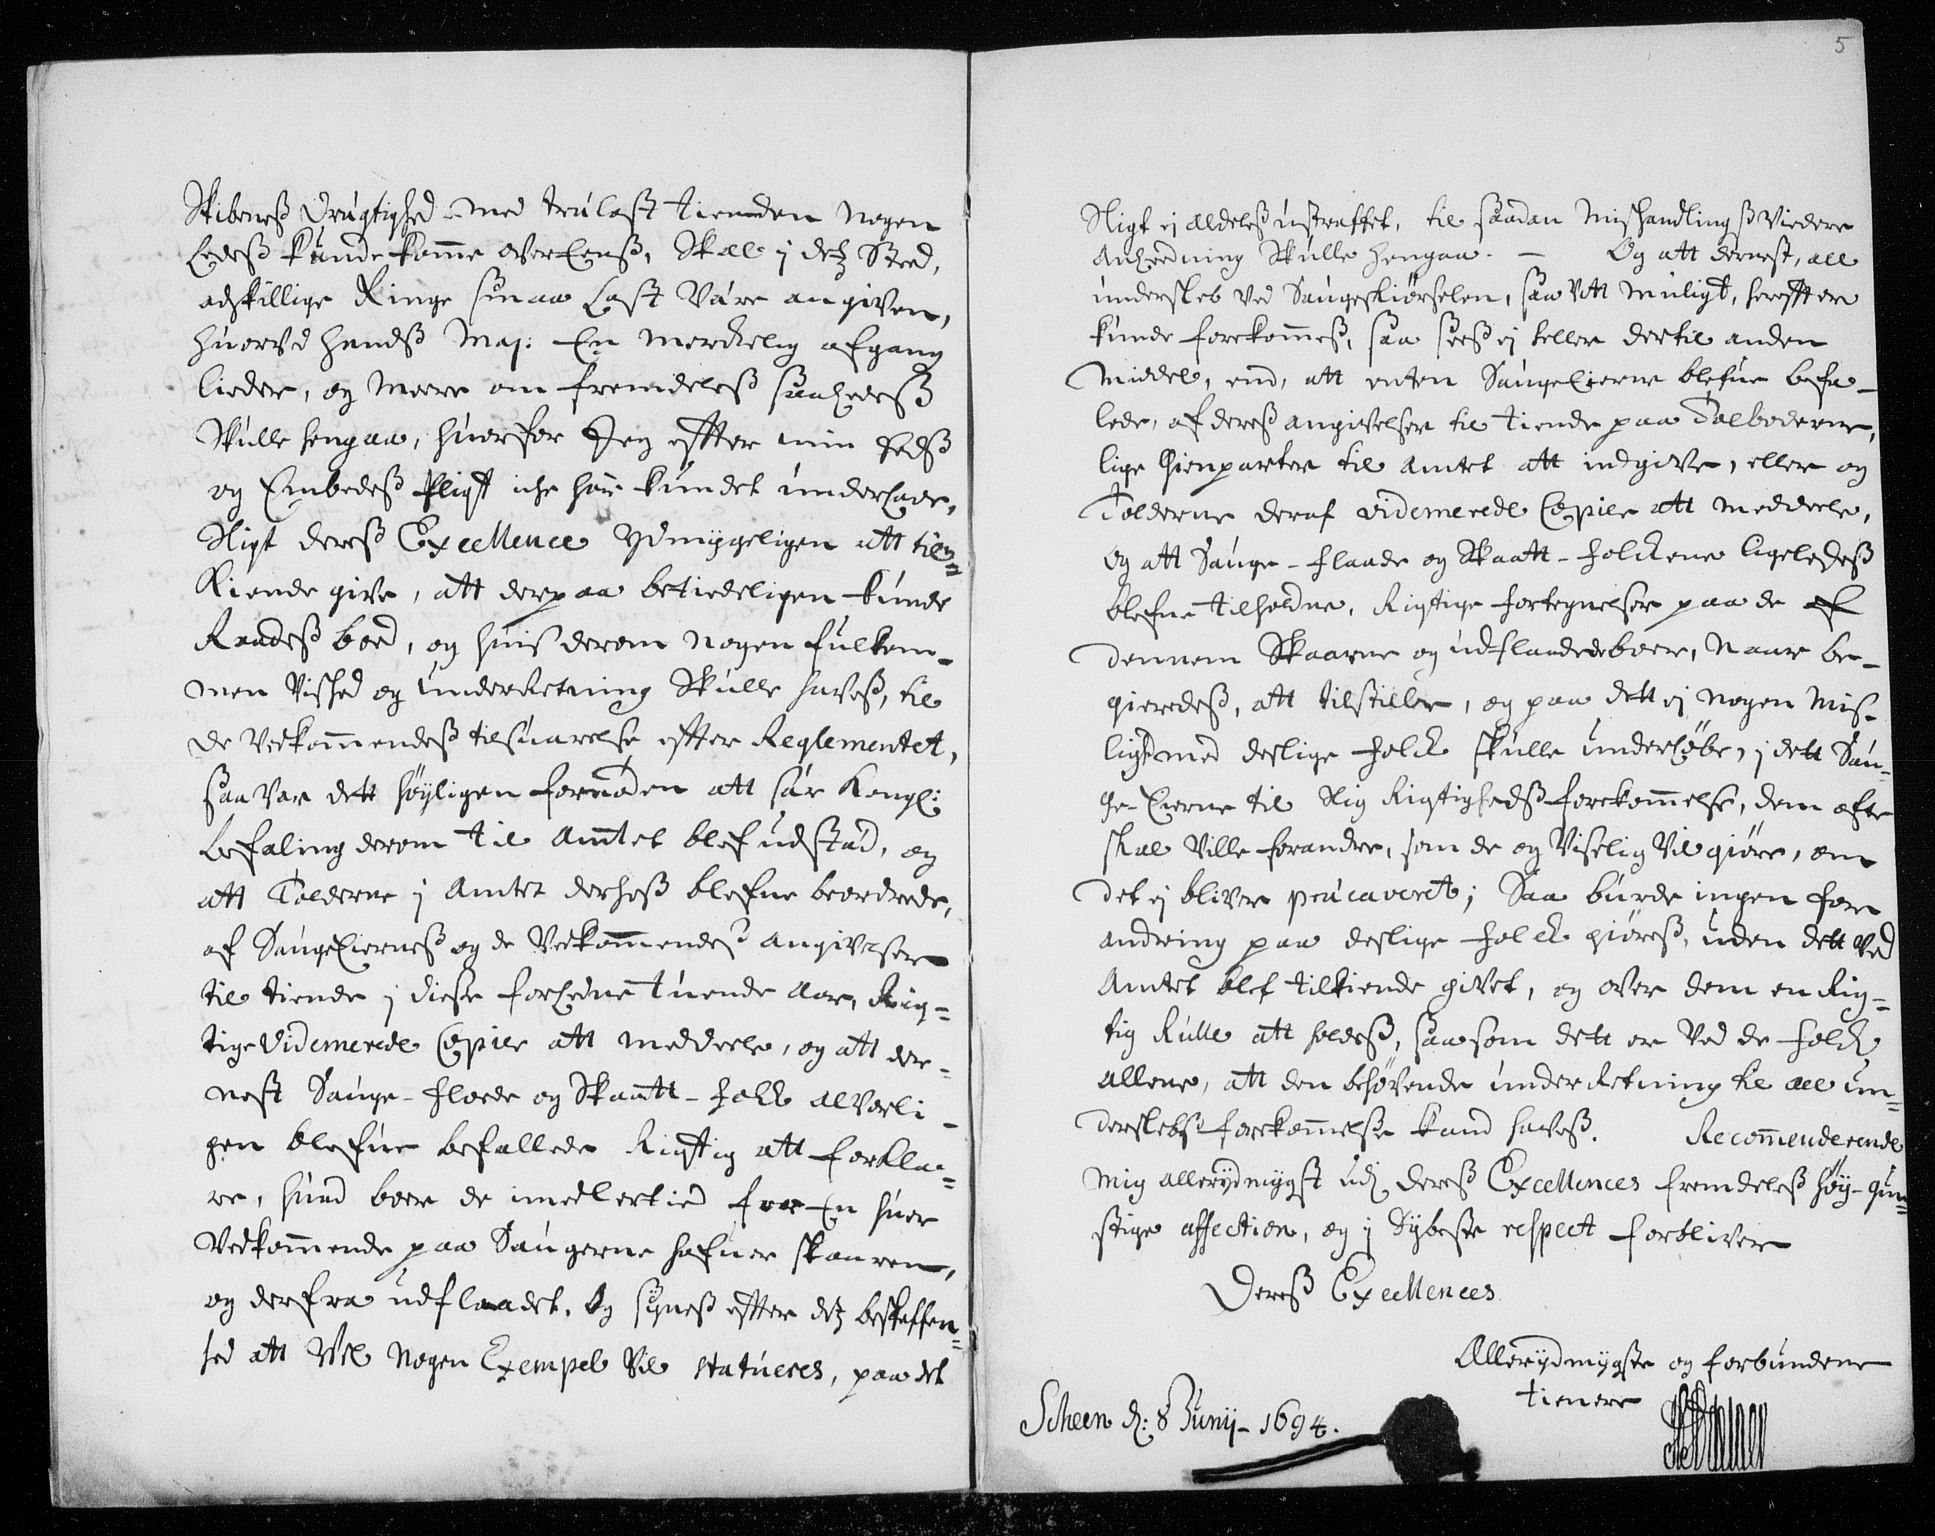 Skibeneß Drugtighed med trælast tienden nogen
Ledeß kunde komme over Eenß, Skal j detz Sted,
adskillige Ringe smaa Last være angiven,
huorved Handß Maj: En merckelig afgang
lieder, og meere om fremdeleß saaledeß
skulle hengaa, huorfor Jeg effter min Eedß
og Embedeß Pligt iche haver kundet underlade,
Sligt dereß Excellence ydmygeligen att til=
kiende give, att derpaa betiedeligen kunde
Raadeß boed, og huis derom nogen fulkom-
men Vished og underRetning Skulle haveß, til
de Vedkommendeß tilsuarelse effter Reglementet,
saa var dett høyligen fornøden att sær Kongl:
befaling derom til Amtet blef udstæd, og
att Tolderne j Amtet derhoß blefue beordrede,
af SaugeEierneß og de Vedkommendeß angivelser
til tiende j disse forledne tuende Aar, Rig=
tige Videmerede Copier att meddeele, og att der-
nest Sauge-Floede og Skaatt-Folck alvorli-
gen blefue befallede Rigtig att forkla=
re, huad boer de imedlertid for En huer
Vedkommende paa Saugerne hafuer skaaren,
og derfra udflaadet. Og syneß effter detz beskaffen=
hed att Vel nogen Exempel Vil statueres, paa det
5
Sligt ej aldeleß ustraffet, til saadan Mishandlingß Viedere
Anleedning Skulle hengaa. — Og att dernest, all
undersleb ved Saugeskiørselen, saa Vitt muligt, hereffter
kunde forekommeß, saa seeß ej heller dertil anden
Middel, end, att enten SaugeEierne blefue befa-
lede, af dereß angivelser til tiende paa Tolboderne,
lige Gienparter til Amtet att indgive, eller og
Tolderne deraf videmerede Copier att meddeele,
og att Sauge-Flaade og Skaatt-Folckene ligeledeß
blefue tilholdne, Rigtige fortegnelser paa de af
dennem Skaarne og udflaadede boer, Naar be-
gieredeß, att tilstille, og paa dett ej nogen Mis-
lighed med deslige Folck skulle underløbe, j dett Sau-
ge-Eierne til Slig Rigtighedß forekommelse, dem ofte
skal Ville forandre, som de og Viselig Vil giøre, om
det ej bliver præcaveret; Saa burde ingen for
andring paa deslige Folck giøreß, uden dett ved
Amtet blef tilkiende givet, og over dem en Rig=
tig Rulle att holdeß, saasom dett er Ved de Folck
allene, att den behøvende underRetning til all un=
derslebß forekommelse kand haveß. Recommenderende
mig allerydmygst udj dereß Excellences fremdeleß høy-gun=
stige affection, og j dybeste respect forbliver
Dereß Excellences
Allerydmygste og forbundene
tienere
Scheen d: 8 Junij - 1694.